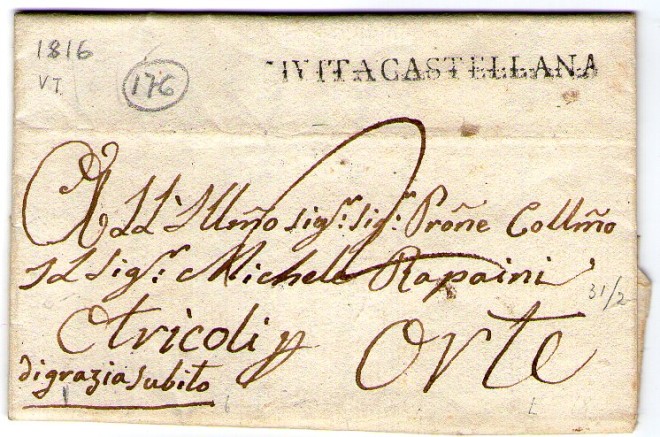 1816
VT
176
IVITACASTELLANA
All' Illm̃o Sigr. Sigr. Prõne Collm̃o
Il Sigr. Michele Rapaini
Otricoli p
Orte
di grazia subito
31/2